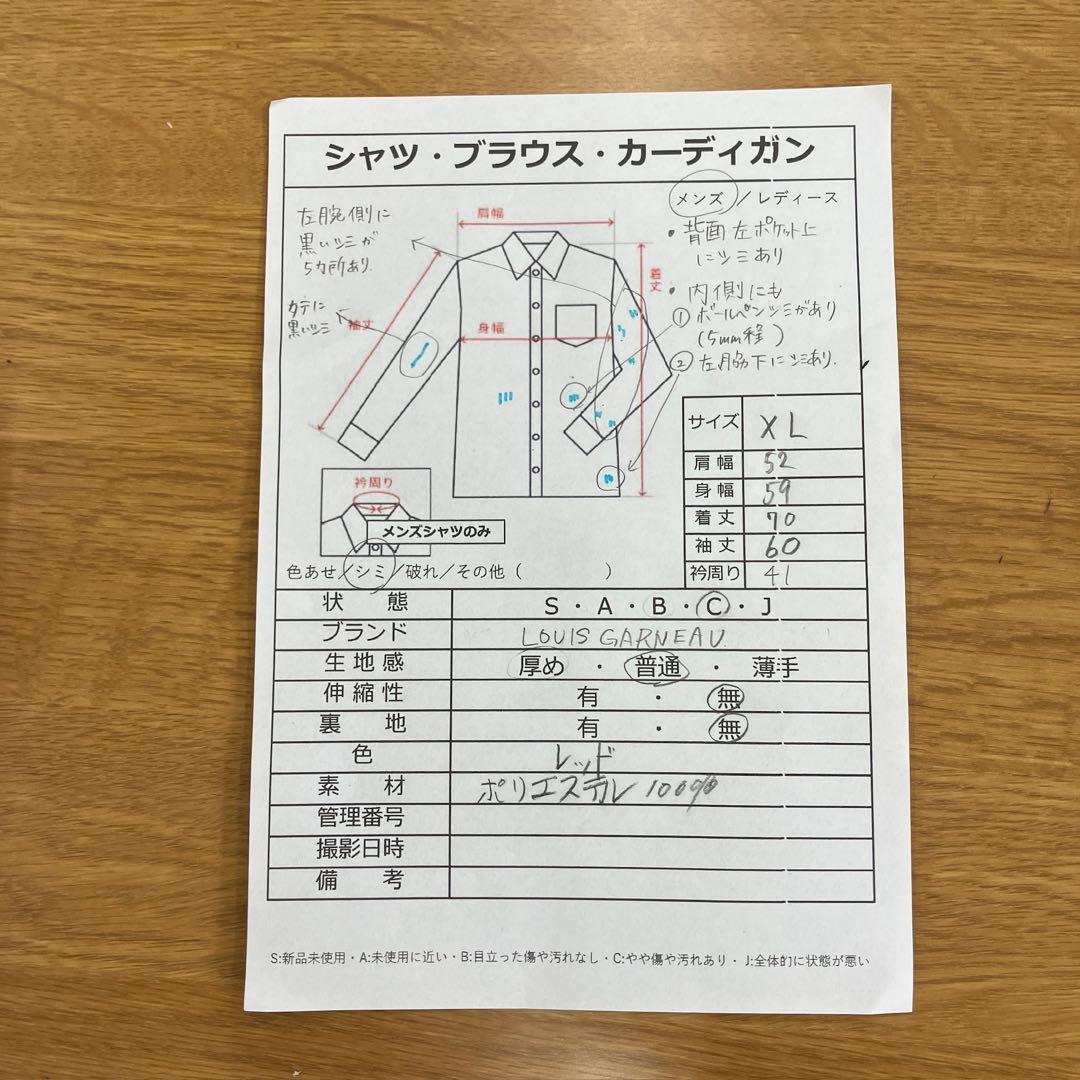 シャツ・ブラウス・カーディガン
メンズ／レディース
左腕側に
黒いシミが
5カ所あり.
タテに
黒いシミ
肩幅
着丈
袖丈
身幅
・背面左ポケット上
にシミあり
・内側にも
①ボールペンシミがあり
(5mm程)
②左脇下にシミあり.
衿周り
メンズシャツのみ
サイズ XL
肩幅 52
身幅 59
着丈 70
袖丈 60
衿周り 41
色あせ／シミ／破れ／その他（　　　　）
状態 S・A・B・C・J
ブランド LOUIS GARNEAU.
生地感 厚め・普通・薄手
伸縮性 有・無
裏地 有・無
色 レッド
素材 ポリエステル100%
管理番号
撮影日時
備考
S:新品未使用・A:未使用に近い・B:目立った傷や汚れなし・C:やや傷や汚れあり・J:全体的に状態が悪い